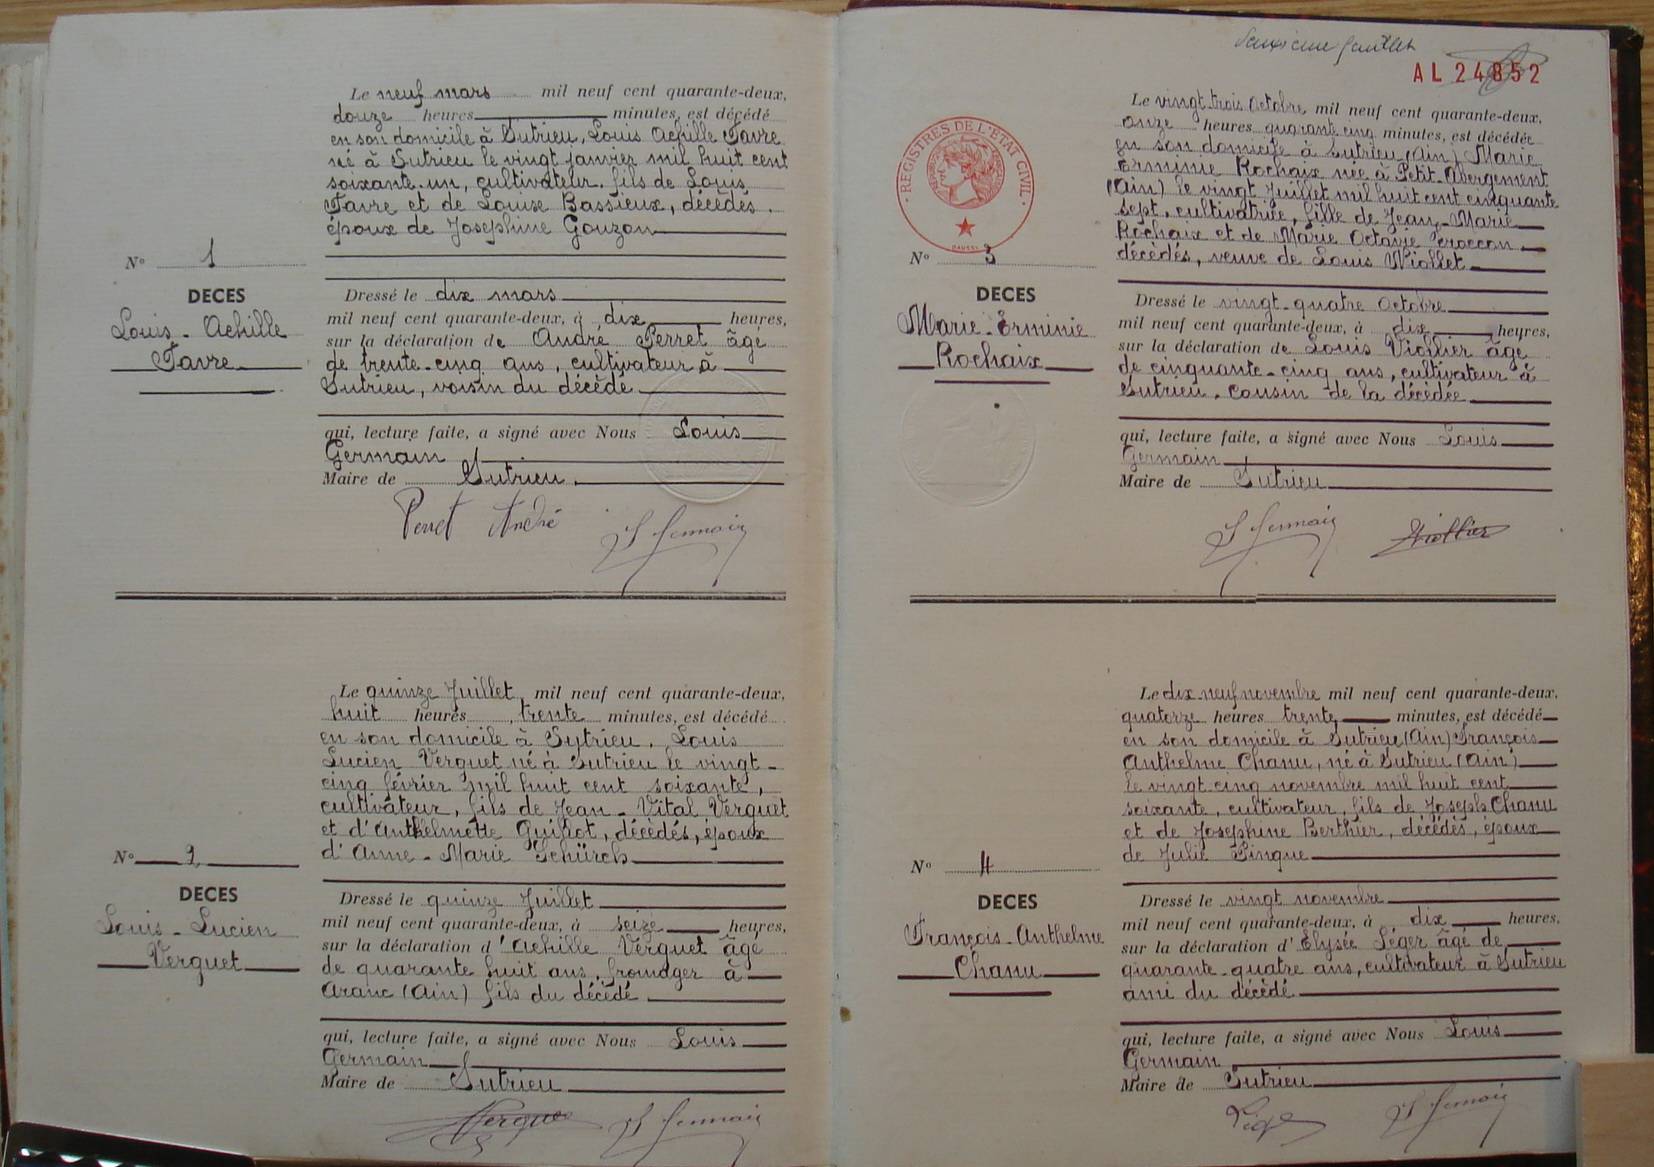 Le neuf mars mil neuf cent quarante-deux,
douze heures minutes, est décédé
en son domicile à Sutrieu, Louis Achille Favre
né à Sutrieu le vingt janvier mil huit cent
soixante-un, cultivateur, fils de Louis
Favre et de Louise Bassieux, décédés.
époux de Joséphine Gouzon
N° 1
DECES
Louis-Achille
Favre
Dressé le dix mars
mil neuf cent quarante-deux, à dix heures,
sur la déclaration de André Perret âgé
de trente-cinq ans, cultivateur à
Sutrieu, voisin du décédé
qui, lecture faite, a signé avec Nous Louis
Germain
Maire de Sutrieu.
Perret André L Germain
Le quinze Juillet mil neuf cent quarante-deux,
huit heures trente minutes, est décédé
en son domicile à Sutrieu, Louis
Lucien Verguet né à Sutrieu le vingt-
cinq février mil huit cent soixante,
cultivateur, fils de Jean-Vital Verguet
et d'Anthelmette Guillot, décédés, époux
d'Anne-Marie Schürch
N° 2
DECES
Louis-Lucien
Verguet
Dressé le quinze Juillet
mil neuf cent quarante-deux, à seize heures,
sur la déclaration d'Achille Verguet âgé
de quarante huit ans, fromager à
Aranc (Ain) fils du décédé
qui, lecture faite, a signé avec Nous Louis
Germain
Maire de Sutrieu
Verguet L Germain
deuxième feuillet
AL 24852
REGISTRES DE L'ETAT CIVIL
Le vingt trois Octobre mil neuf cent quarante-deux,
onze heures quarante cinq minutes, est décédée
en son domicile à Sutrieu (Ain) Marie
Erminie Rochaix née à Petit-Abergement
(Ain) le vingt Juillet mil huit cent cinquante
sept, cultivatrice, fille de Jean-Marie
Rochaix et de Marie Octavie
décédés, veuve de Louis Viollet
N° 3
DECES
Marie-Erminie
Rochaix
Dressé le vingt-quatre Octobre
mil neuf cent quarante-deux, à dix heures,
sur la déclaration de Louis Viollier âgé
de cinquante-cinq ans, cultivateur à
Sutrieu, cousin de la décédée
qui, lecture faite, a signé avec Nous Louis
Germain
Maire de Sutrieu
L Germain Viollier
Le dix neuf novembre mil neuf cent quarante-deux,
quatorze heures trente minutes, est décédé
en son domicile à Sutrieu (Ain) François
Anthelme Chanu, né à Sutrieu (Ain)
le vingt cinq novembre mil huit cent
soixante, cultivateur, fils de Joseph Chanu
et de Joséphine Berthier, décédés, époux
de Julie Pingue
N° 4
DECES
François-Anthelme
Chanu
Dressé le vingt novembre
mil neuf cent quarante-deux, à dix heures,
sur la déclaration d'Elysée Léger âgé de
quarante-quatre ans, cultivateur à Sutrieu
ami du décédé
qui, lecture faite, a signé avec Nous Louis
Germain
Maire de Sutrieu
Léger L Germain